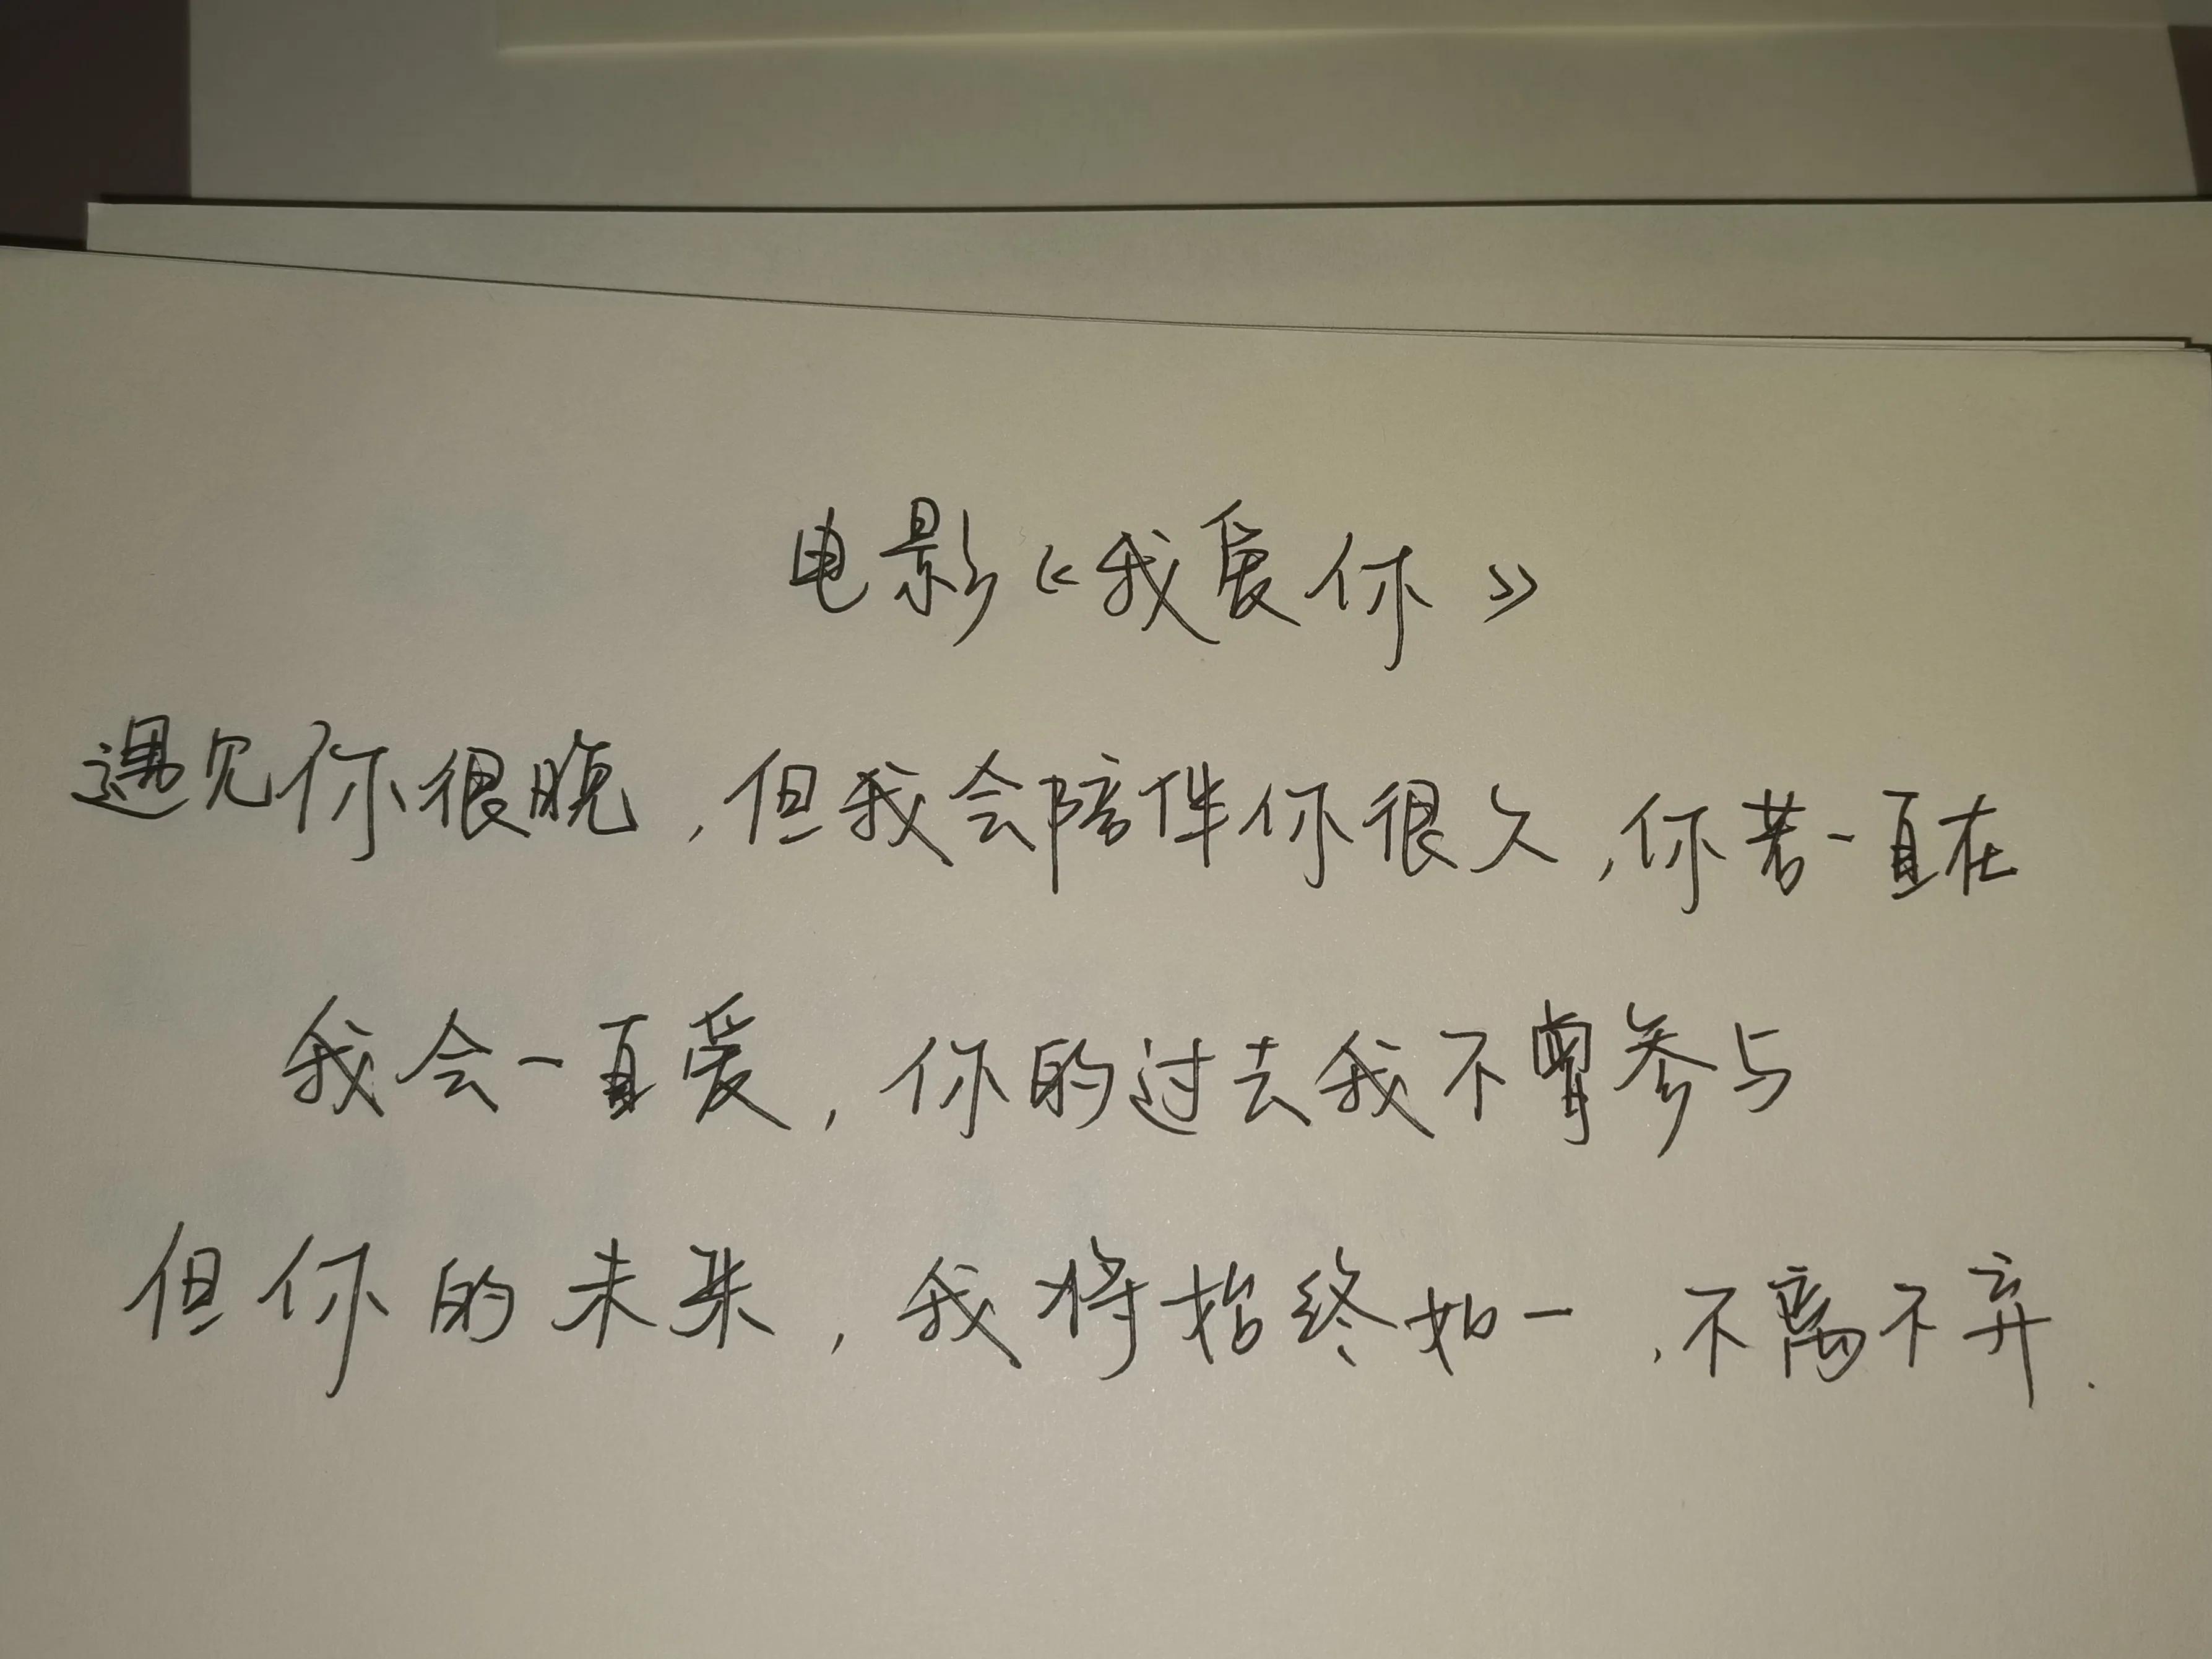 电影《我爱你》
遇见你很晚，但我会陪伴你很久，你若一直在
我会一直爱，你的过去我不曾参与
但你的未来，我将始终如一，不离不弃.